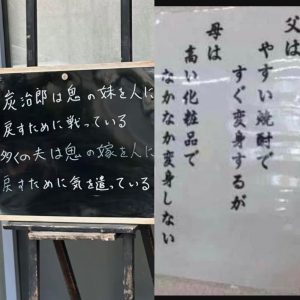 炭治郎は鬼の妹を人に
戻すために戦っている
多くの夫は鬼の嫁を人に
戻すために気を遣っている
父は
やすい焼酎で
すぐ変身するが
母は
高い化粧品で
なかなか変身しない